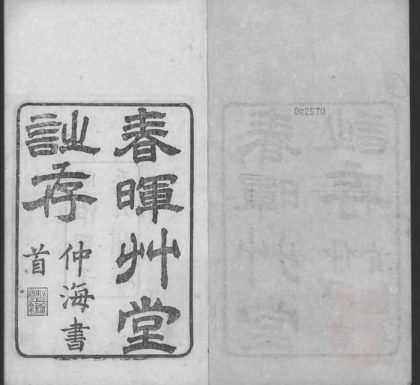 春暉艸堂
詩存
仲海書
首